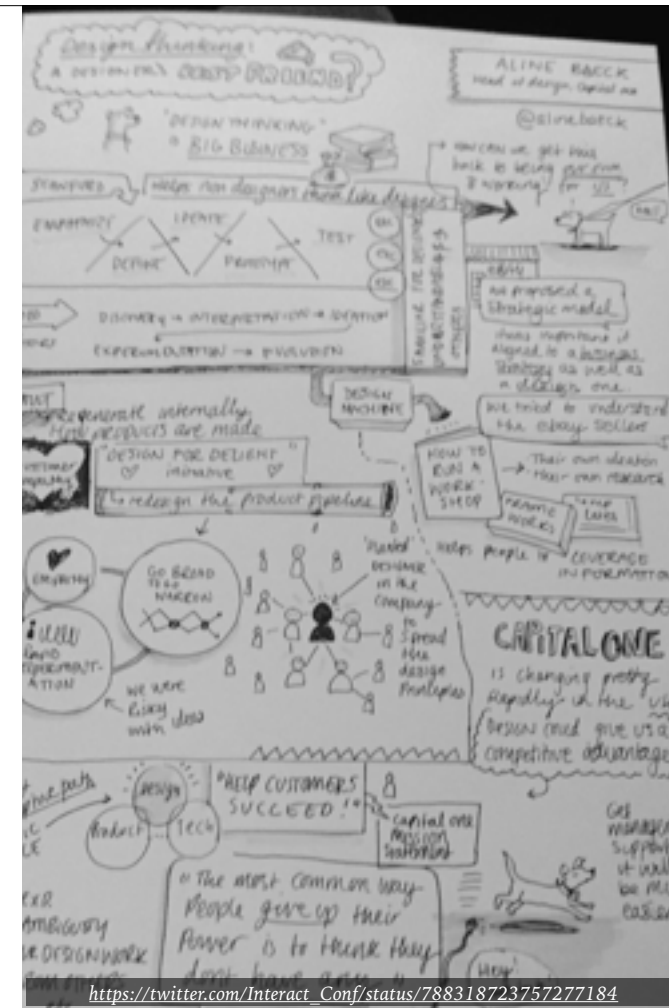 Design Thinking:
A DESIGNER'S BEST FRIEND?
ALINE BAECK
Head of design, Capital One
@alinebaeck
"DESIGN THINKING"
is BIG BUSINESS
HOW CAN we get this
back to being
& working for US?
STANFORD
Helps non designers think like designers
EMPATHIZE
DEFINE
IDEATE
PROTOTYPE
TEST
DISCOVERY → INTERPRETATION → IDEATION
EXPERIMENTATION → EVOLUTION
ebay
We proposed a
Strategic model
it was important it
aligned to a business
strategy as well as
a design one
We tried to understand
the ebay sellers
DESIGN
MACHINE
regenerate internally
How products are made
"DESIGN FOR DELIGHT"
initiative
redesign the product pipeline
HOW TO
RUN A
WORK-
SHOP
Their own ideation
their own research
FRAME
WORKS
Helps people to LEVERAGE
INFORMATION
EMPATHY
GO BROAD
TO GO
NARROW
RAPID
EXPERIMENT-
ATION
we were
Risky
with ideas
DESIGNER
in the
company
to
spread
the
design
Principles
CAPITAL ONE
is changing pretty
Rapidly in the
DESIGN could give us a
competitive advantage
Design
Product
Tech
"HELP CUSTOMERS
SUCCEED!"
Capital one
Mission
Statement
Get
support
it will
be
easier
AMBIGUITY
DESIGN WORK
"The most common way
People give up their
Power is to think they
don't have any."
Hey!
https://twitter.com/Interact_Conf/status/788318723757277184